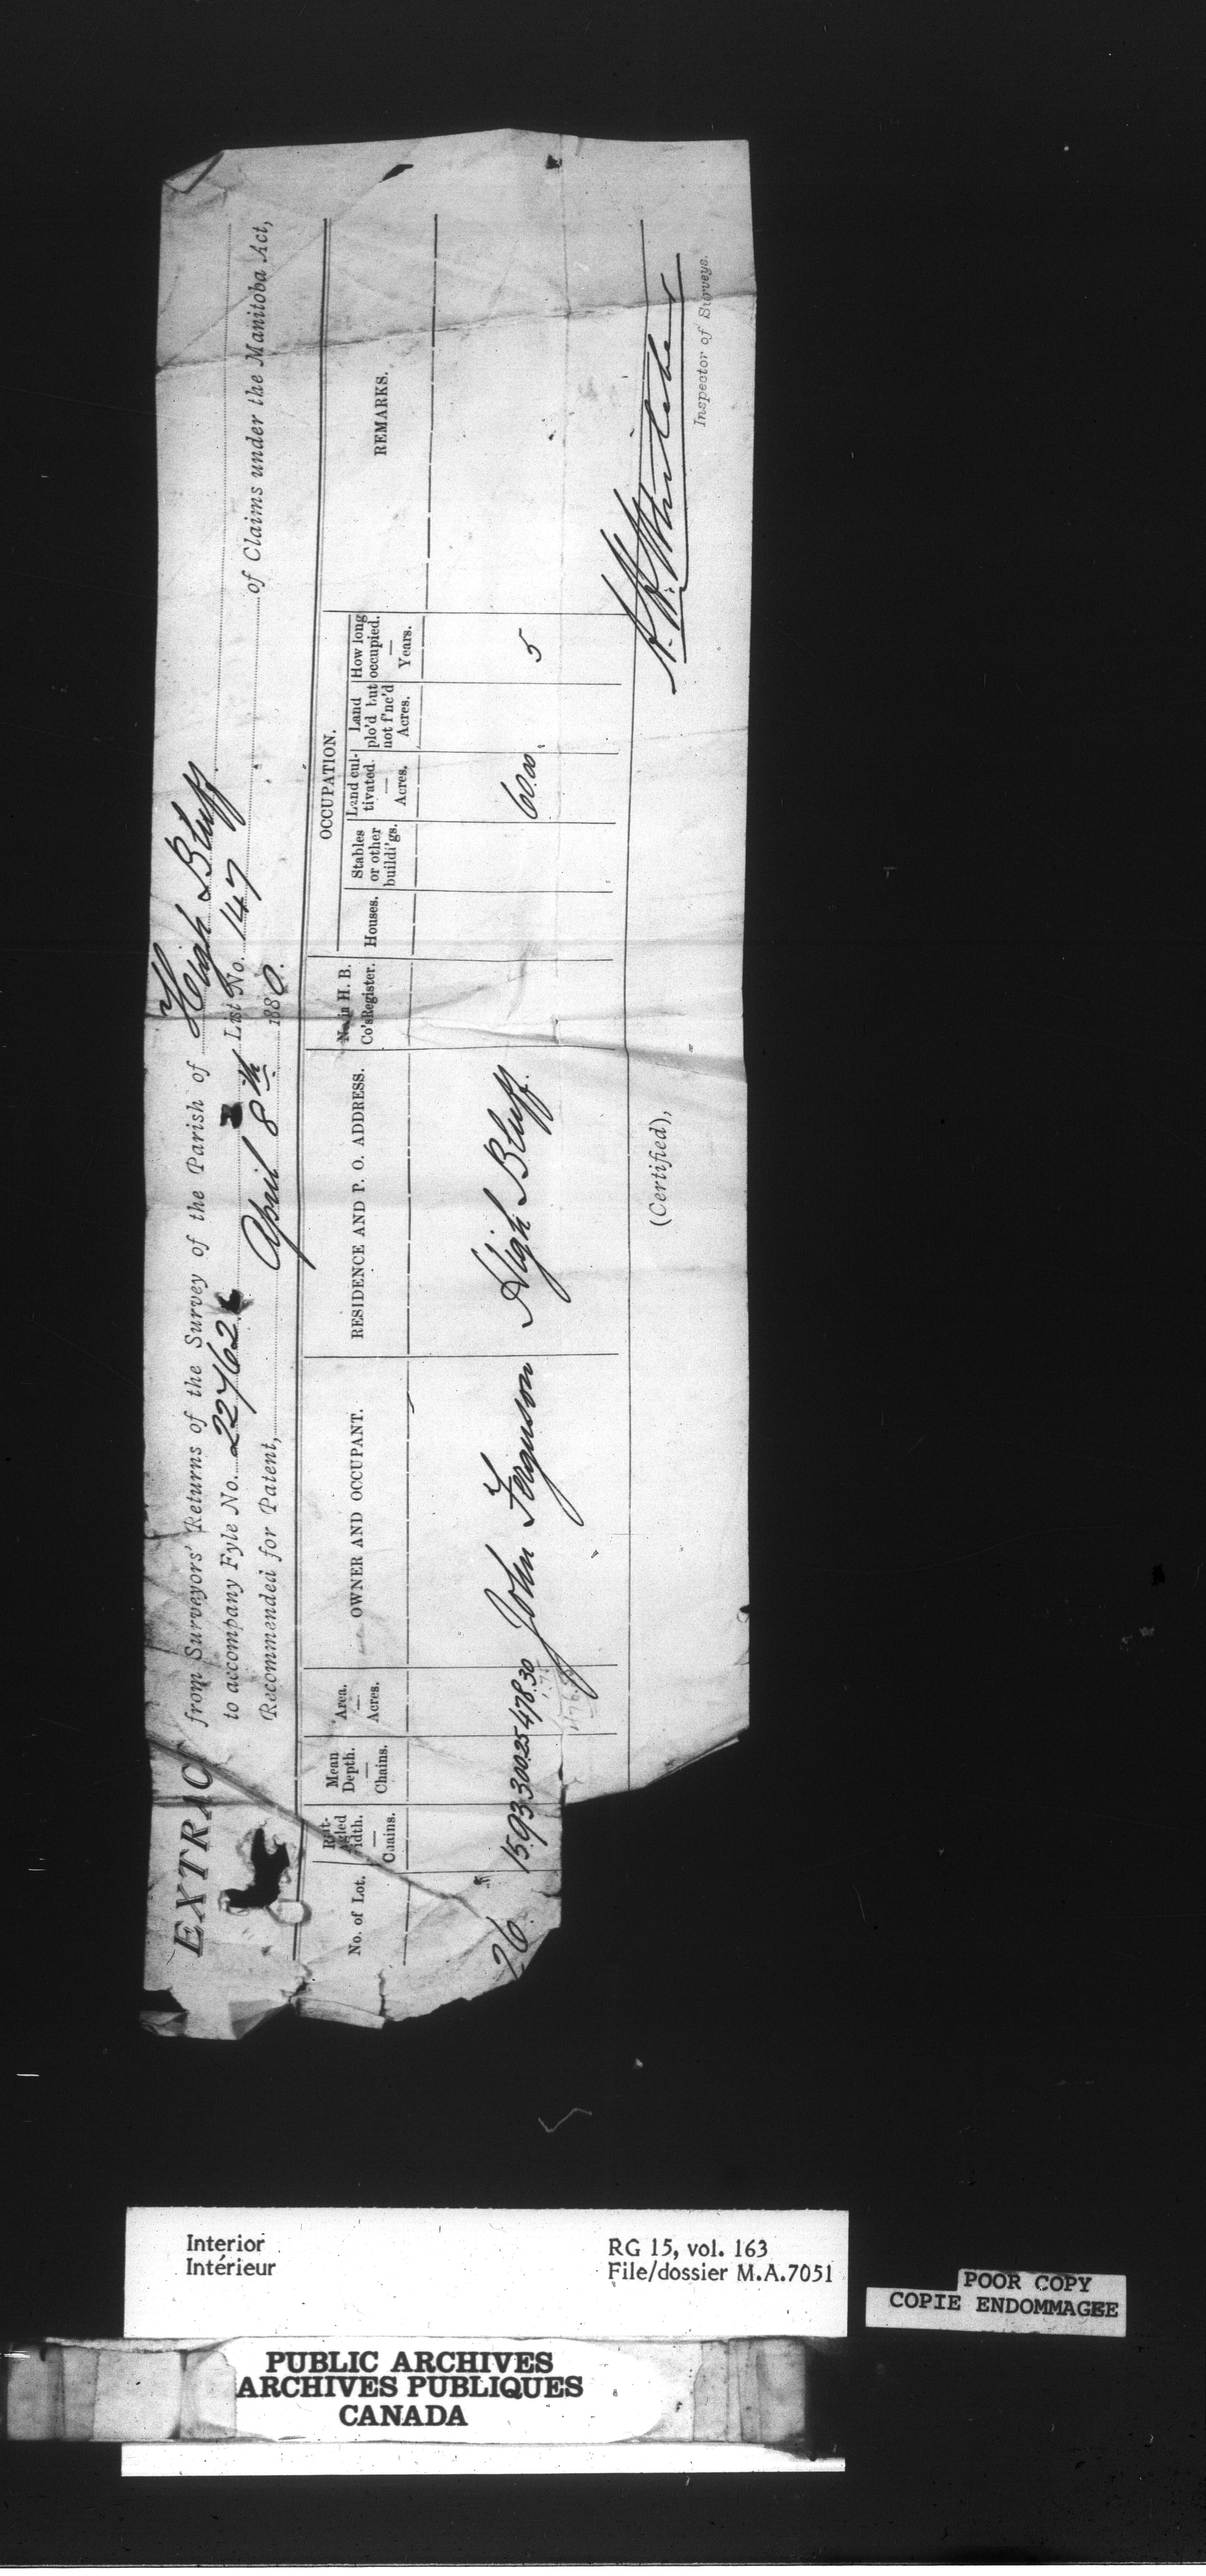 EXTRAC from Surveyors' Returns of the Survey of the Parish of High Bluff
to accompany Fyle No. 22762 List No. 147 of Claims under the Manitoba Act,
Recommended for Patent, April 8th 1880.
OCCUPATION.
No. of Lot.
Chains.
Mean Depth. — Chains.
Area. — Acres.
OWNER AND OCCUPANT.
RESIDENCE AND P. O. ADDRESS.
No. in H. B. Co's Register.
Houses.
Stables or other buildi'gs.
Land cultivated. — Acres.
Land plo'd but not f'nc'd Acres.
How long occupied. — Years.
REMARKS.
26. 15.93 300.25 478.30 John Ferguson High Bluff. 60.00 5
(Certified),
Inspector of Surveys.
Interior
Intérieur
RG 15, vol. 163
File/dossier M.A.7051
POOR COPY
COPIE ENDOMMAGEE
PUBLIC ARCHIVES
ARCHIVES PUBLIQUES
CANADA